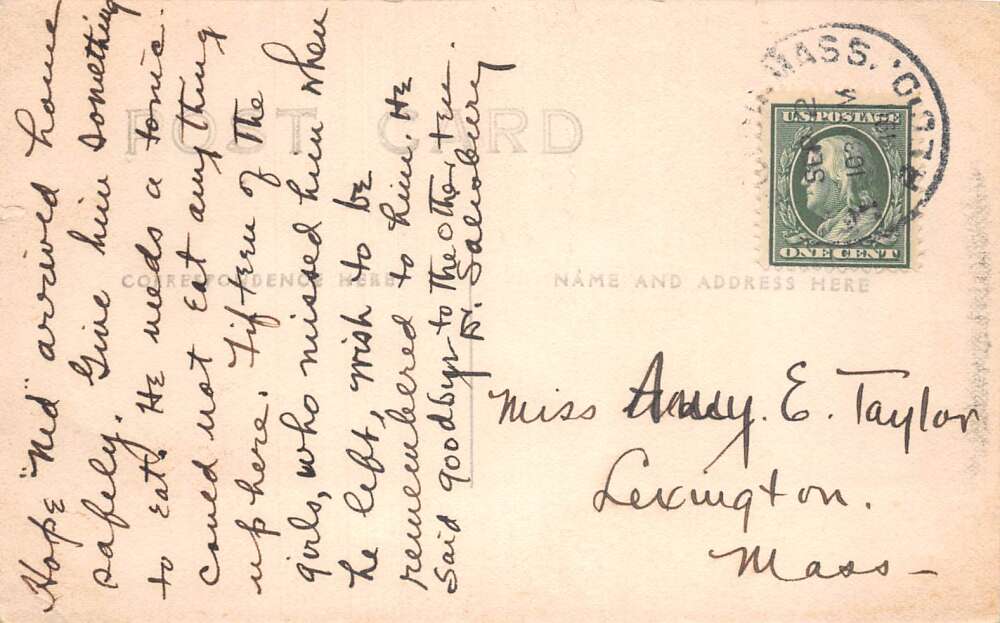 POST CARD
CORRESPONDENCE HERE
NAME AND ADDRESS HERE
Hope "Ned" arrived home
safely. Give him something
to eat. He needs a tonic.
Could not eat anything
up here. Fifteen of the
girls, who missed him when
he left, wish to be
remembered to him. He
said goodbye to the other ten
MASS.
SEP 2
U.S. POSTAGE
ONE CENT
Miss Amy. E. Taylor
Lexington.
Mass-